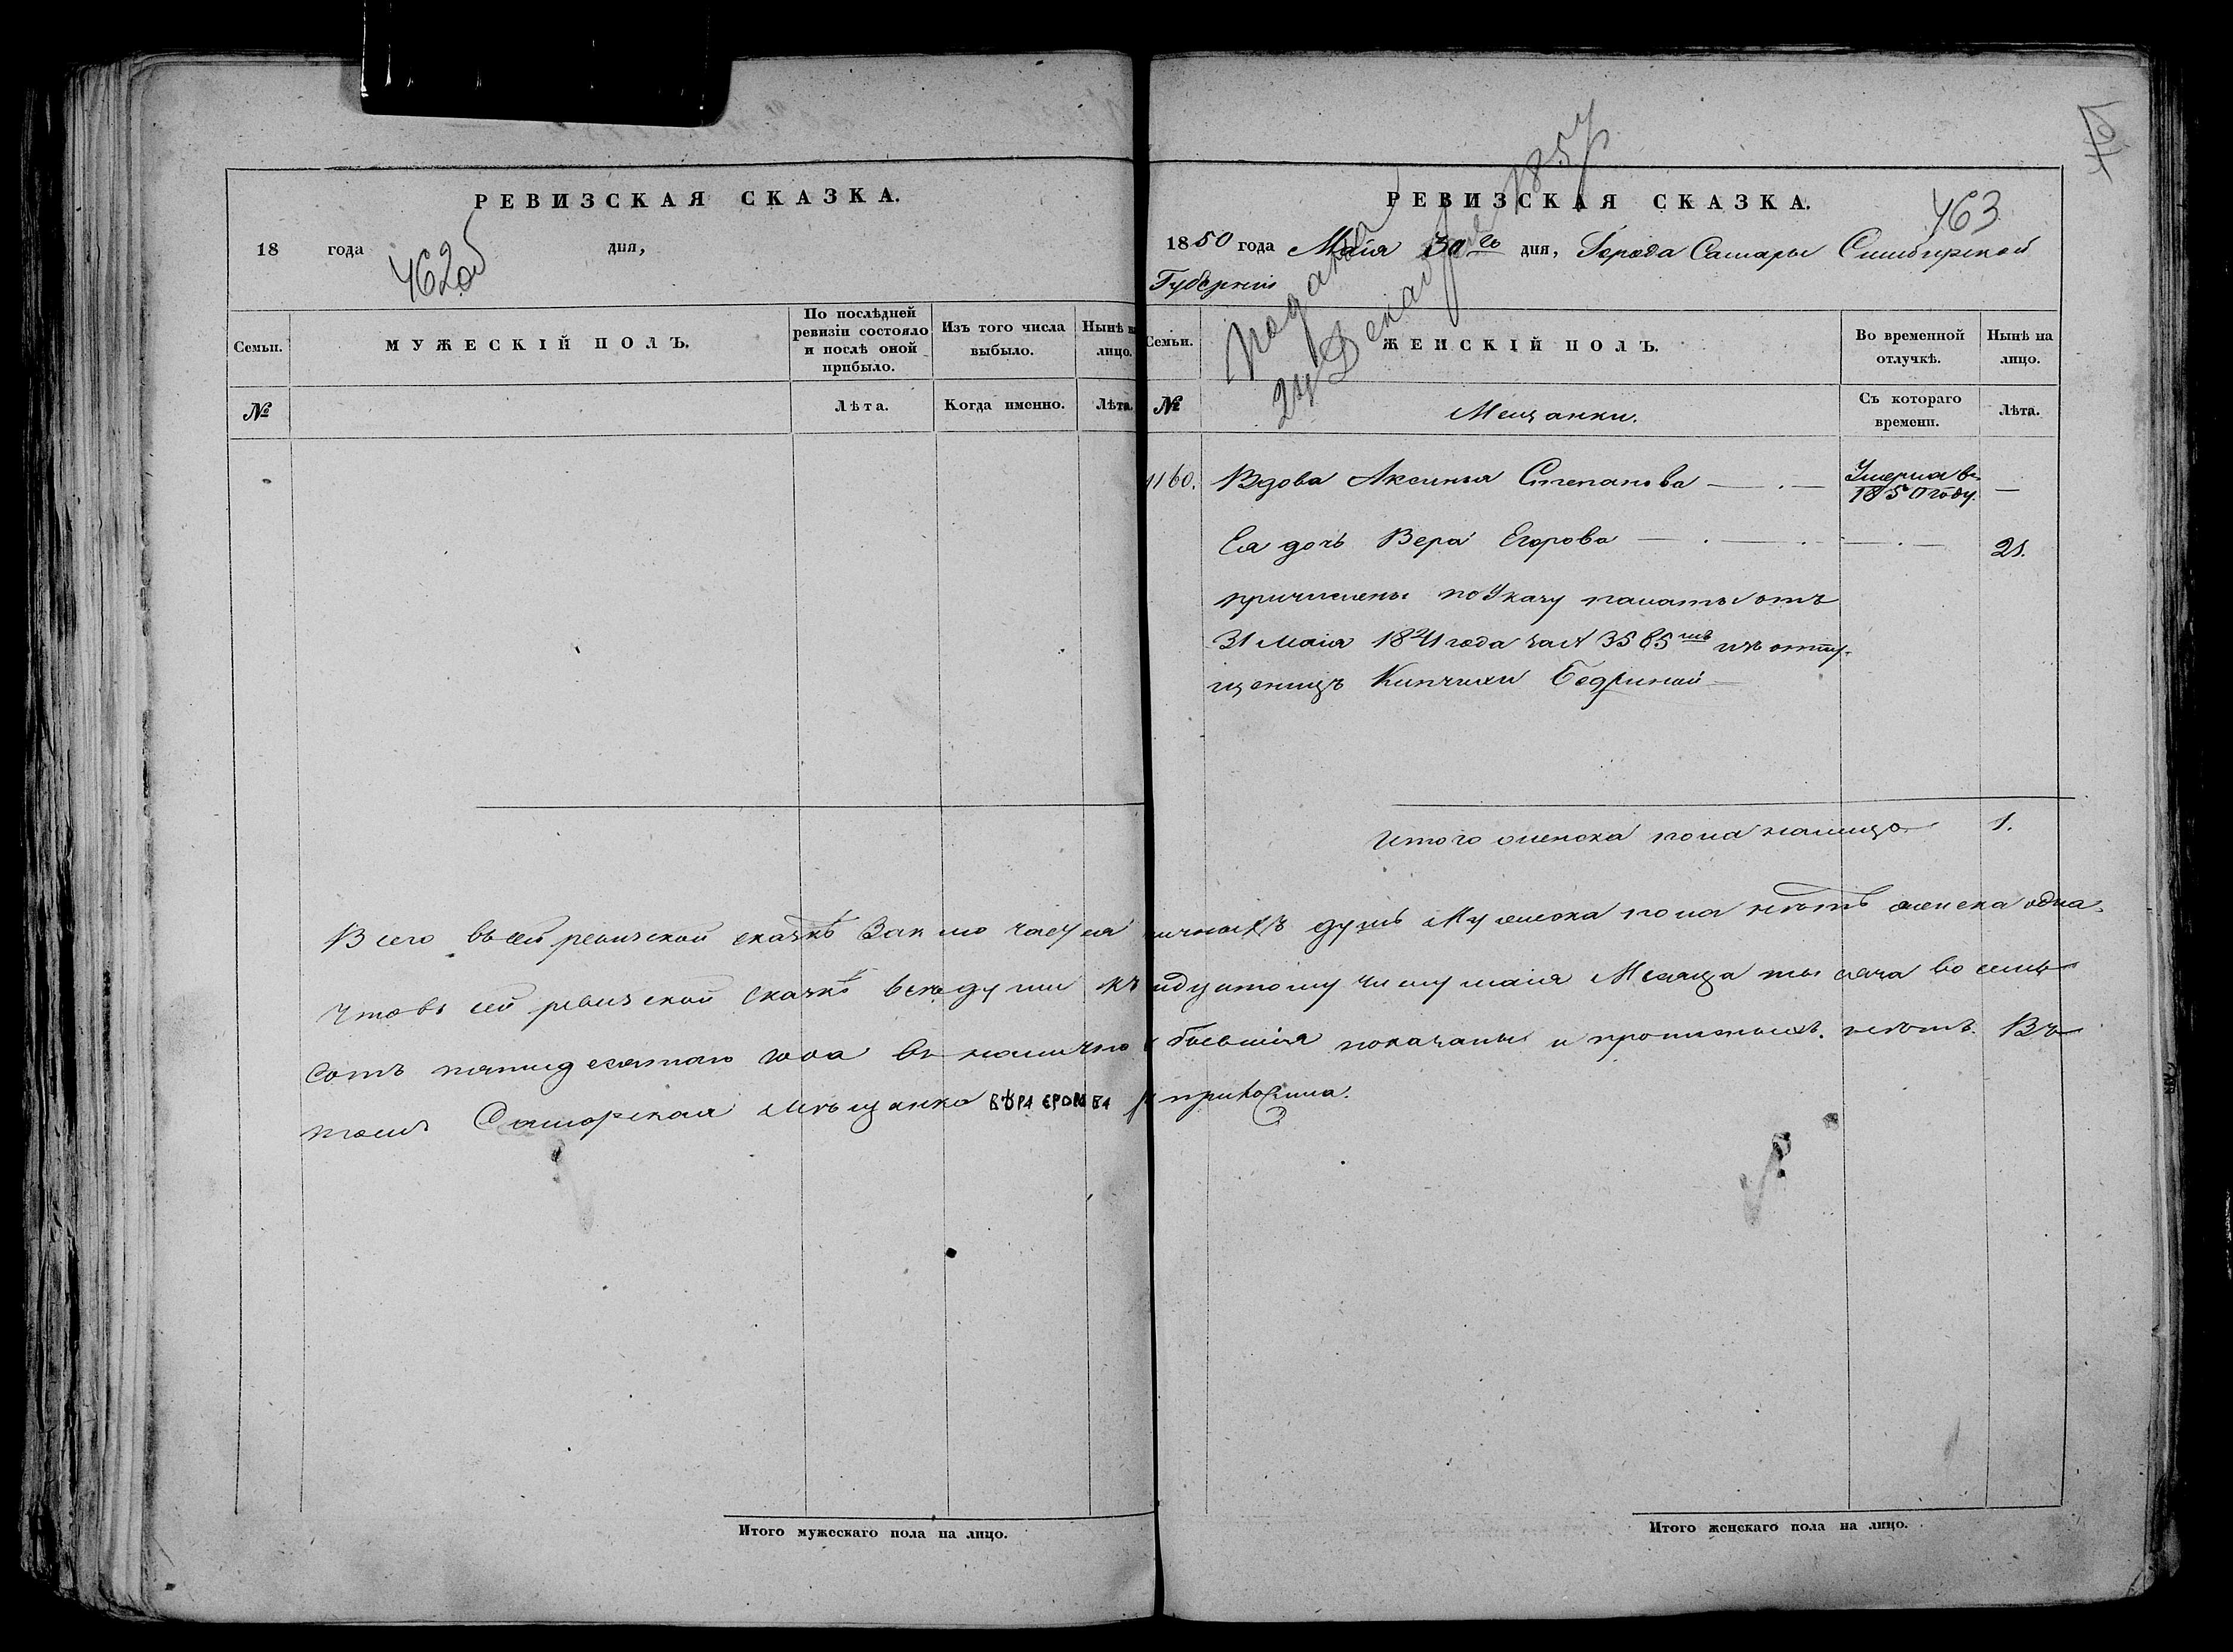 РЕВИЗСКАЯ СКАЗКА.
18 года дня,
462об
Семьи.
МУЖЕСКІЙ ПОЛЪ.
По послѣдней
ревизіи состояло
и послѣ оной
прибыло.
Изъ того числа
выбыло.
Нынѣ на
лицо.
№
Лѣта.
Когда именно.
Лѣта.
Итого мужескаго пола на лицо.
РЕВИЗСКАЯ СКАЗКА.
463
1850 года Маія 30го дня, Города Самары Симбирской
Губерніи
Подана
24 Декабря 1857
Семьи.
ЖЕНСКІЙ ПОЛЪ.
Во временной
отлучкѣ.
Нынѣ на
лицо.
№
Мещанки.
Съ котораго
времени.
Лѣта.
1160. Вдова Аксинья Степанова — . — Умерла въ 1850 году. —
Ея дочь Вера Егорова — . — . — . — 21.
причислены по Указу палаты отъ
31 маія 1841 года за № 3585мъ изъ отпу-
щеницъ
Итого женска пола налицо 1.
Всего въ сей ревизской сказкѣ Заключается личныхъ душъ Мужеска пола нѣтъ женска одна.
Что въ сей ревизской сказкѣ все души къ идущему числу маія Месяца тысяча восемь
сотъ пятидесятаго года въ наличіи бывшія показаны и прописныхъ нѣтъ. Въ
томъ Самарская мѣщанка ВѢРА ЕРОВА приложила.
Итого женскаго пола на лицо.